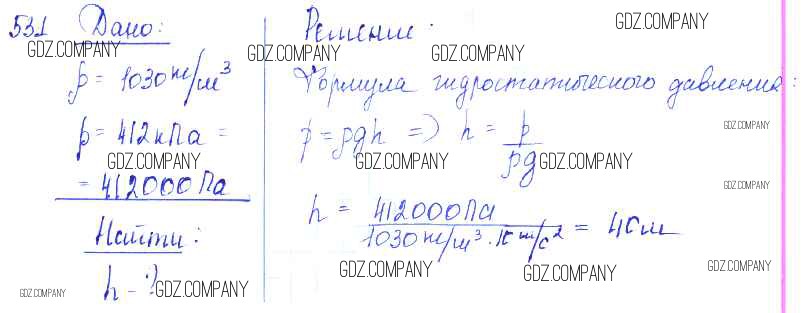 531 Дано:
GDZ.COMPANY
ρ = 1030 кг/м³
p = 412 кПа =
GDZ.COMPANY
= 412000 Па
Найти:
h - ?
GDZ.COMPANY
GDZ.COMPANY
Решение:
GDZ.COMPANY
GDZ.COMPANY
GDZ.COMPANY
GDZ.COMPANY
Формула гидростатического давления:
p = ρgh => h = p/ρg
GDZ.COMPANY
GDZ.COMPANY
GDZ.COMPANY
GDZ.COMPANY
h = 412000 Па / 1030 кг/м³ · 10 м/с² = 40 м
GDZ.COMPANY
GDZ.COMPANY
GDZ.COMPANY